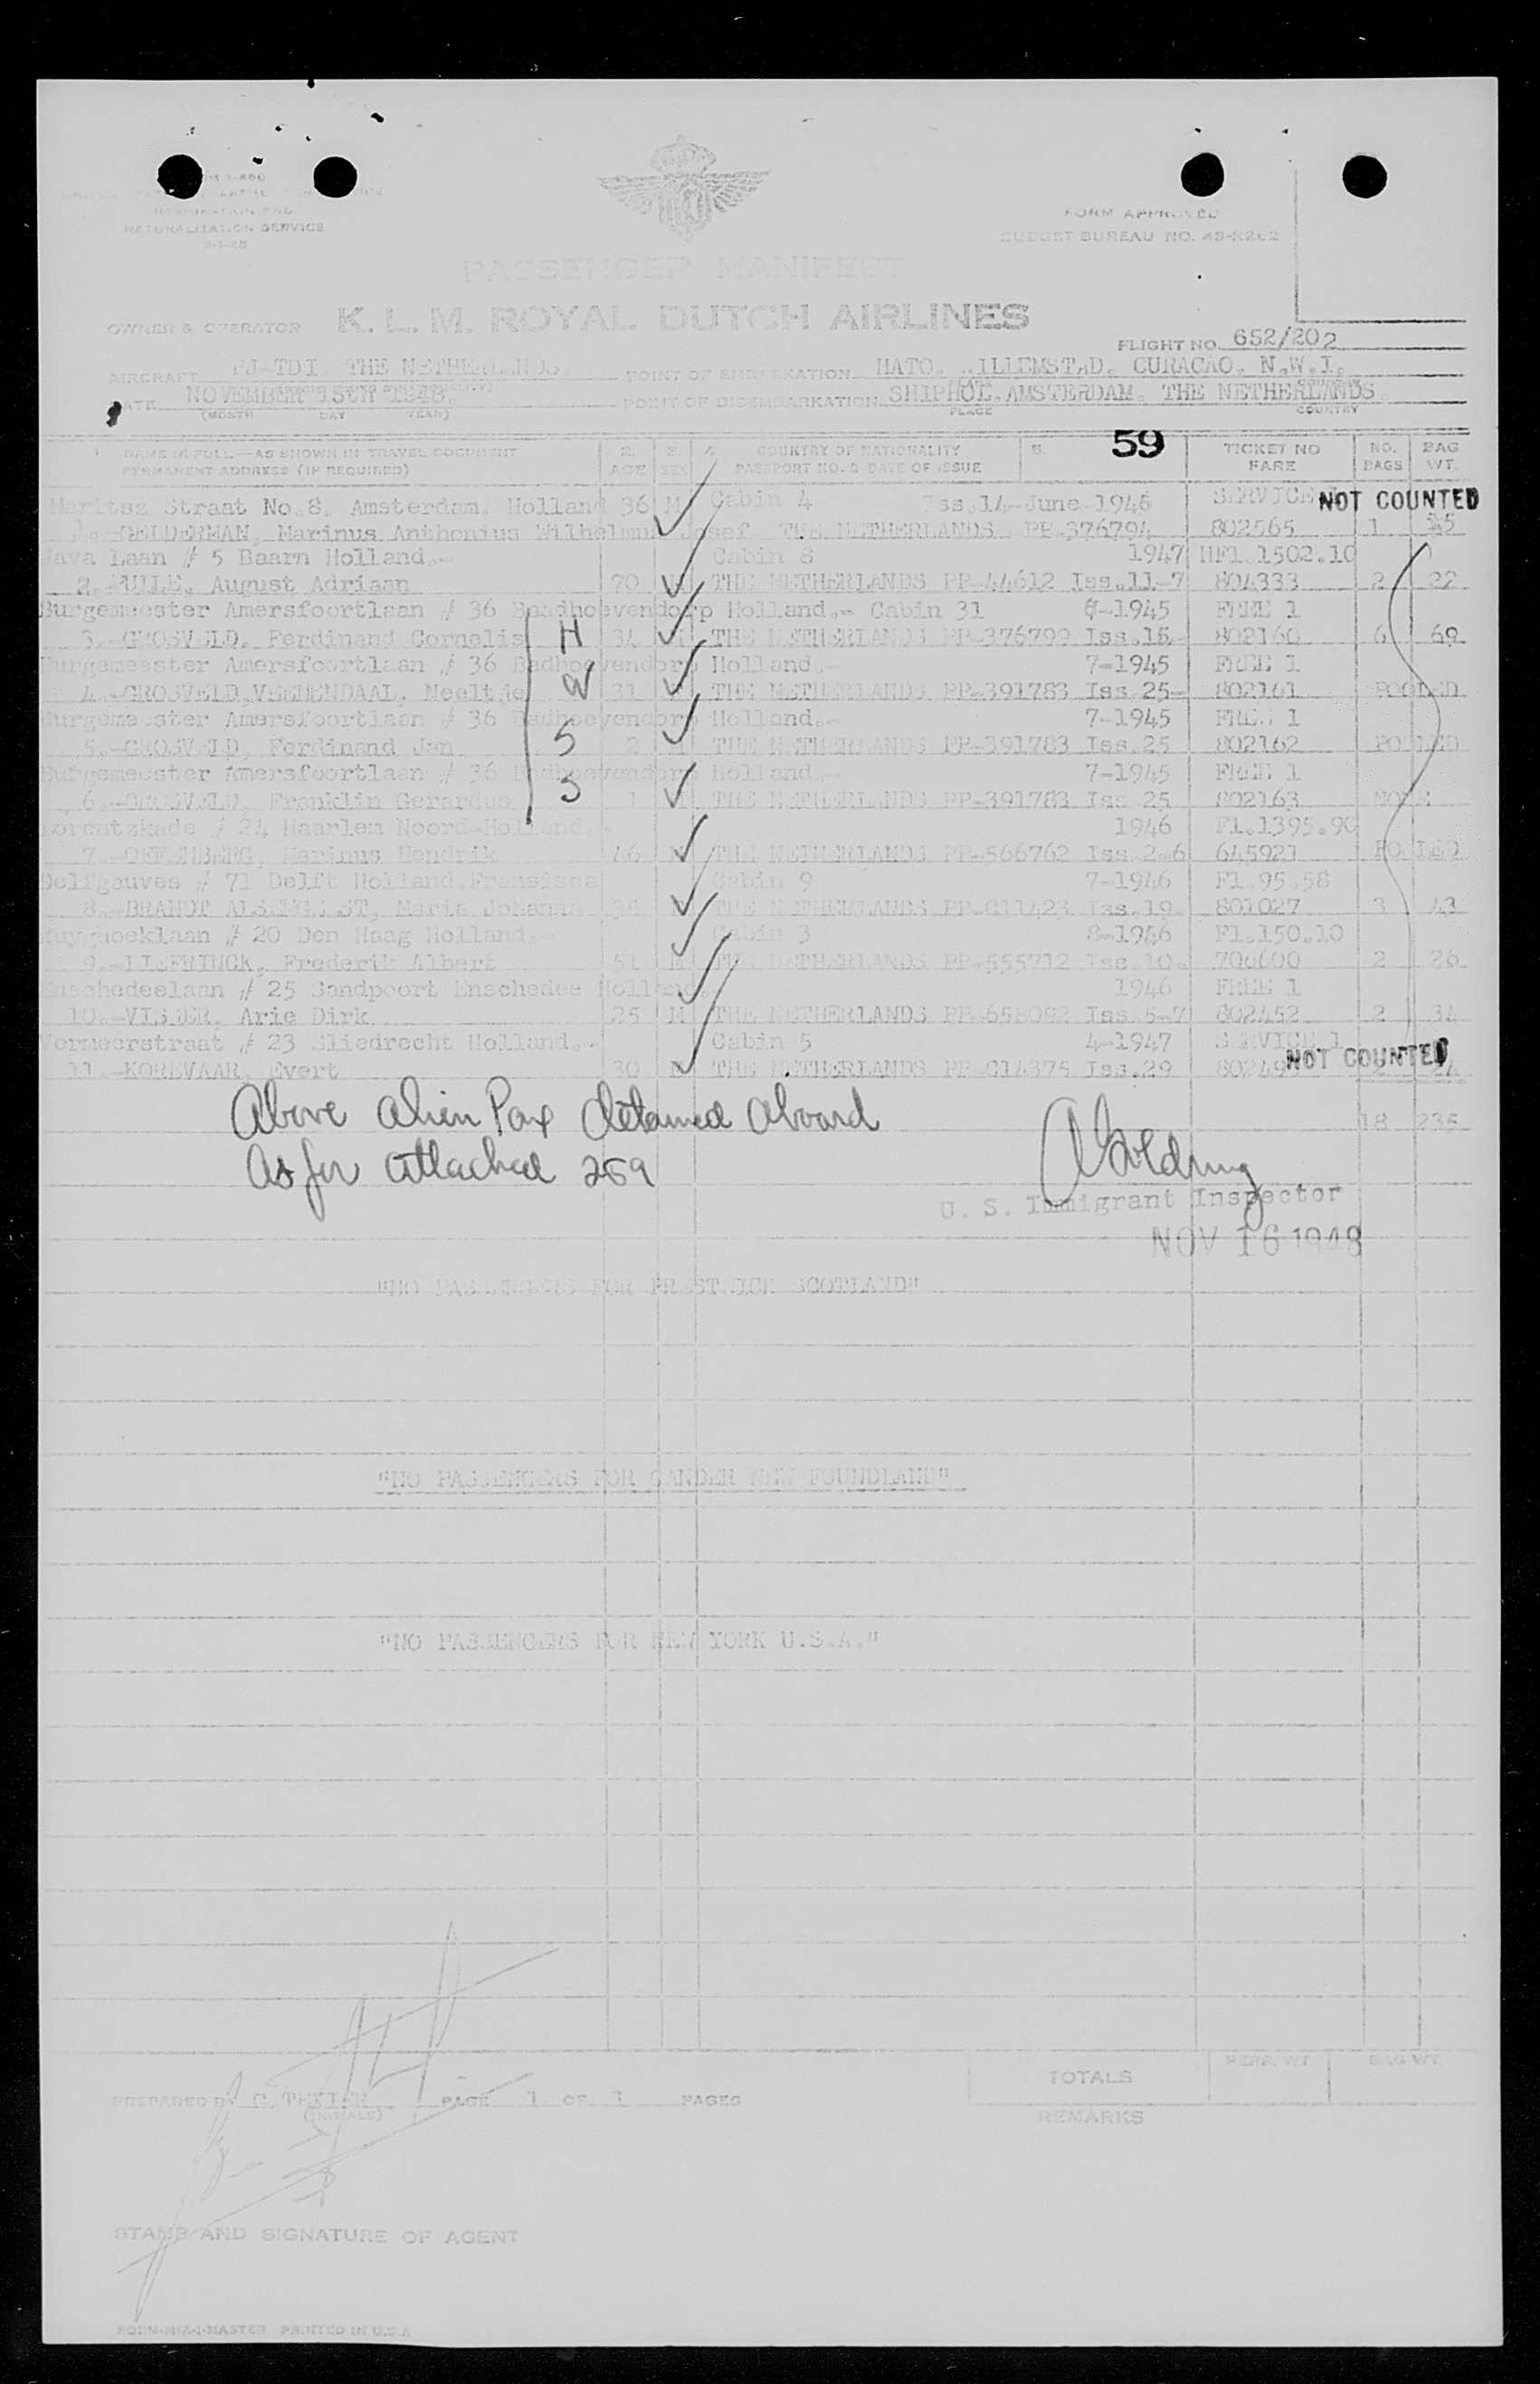 NATURALIZATION SERVICE
FORM APPROVED
BUDGET BUREAU NO. 43-R262
PASSENGER MANIFEST
OWNER & OPERATOR K. L. M. ROYAL DUTCH AIRLINES
FLIGHT NO. 652/202
AIRCRAFT PJ-TDI. THE NETHERLANDS POINT OF EMBARKATION HATO. WILLEMSTAD. CURACAO. N.W.I.
DATE NOVEMBER 15th 1948. POINT OF DISEMBARKATION SHIPHOL. AMSTERDAM. THE NETHERLANDS.
(MONTH DAY YEAR) PLACE COUNTRY
59
NAME IN FULL—AS SHOWN IN TRAVEL DOCUMENT 2. 3. 4. COUNTRY OF NATIONALITY 5. TICKET NO NO. BAG
PERMANENT ADDRESS (IF REQUIRED) AGE SEX PASSPORT NO. & DATE OF ISSUE FARE BAGS WT.
Maritsz Straat No.8. Amsterdam. Holland 36 M Cabin 4 Iss.14-June-1946 SERVICE NOT COUNTED
1.-GELDERMAN, Marinus Anthonius Wilhelmus Josef THE NETHERLANDS PP-376794 802565 1
Java Laan # 5 Baarn Holland.- Cabin 8 1947 HFl.1502.10
2. August Adriaan 70 THE NETHERLANDS PP-44612 Iss.11-7 804333 2 22
Burgemeester Amersfoortlaan # 36 Baadhoevendorp Holland.- Cabin 31 -1945 FREE 1
3.-GROSVELD. Ferdinand Cornelis H 34 THE NETHERLANDS PP-376799 Iss.15- 802160 6 69
Burgemeester Amersfoortlaan # 36 Badhoevendorp Holland.- 7-1945 FREE 1
4.-GROSVELD VEENENDAAL. Neeltje W 31 THE NETHERLANDS PP-391783 Iss.25- 802161 POOLED
Burgemeester Amersfoortlaan # 36 Badhoevendorp Holland.- 7-1945 FREE 1
5.-GROSVELD, Ferdinand Jan S 2 THE NETHERLANDS PP-391783 Iss.25 802162 POOLED
Burgemeester Amersfoortlaan # 36 Badhoevendorp Holland.- 7-1945 FREE 1
6.-GROSVELD, Franklin Gerardus S 1 THE NETHERLANDS PP-391783 Iss 25 802163 NONE
Lorentzkade # 24 Haarlem Noord-Holland.- 1946 Fl.1395.90
7.-OFFENBERG, Marinus Hendrik 46 THE NETHERLANDS PP-566762 Iss.2-6 645921 POOLED
Delfgauves # 71 Delft Holland.Fransisca Cabin 9 7-1946 Fl.95.58
8.-BRANDT Maria Johanna THE NETHERLANDS PP-C11423 Iss.19- 801027 3 43
# 20 Den Haag Holland.- Cabin 3 8-1946 Fl.150.10
9.- Frederik Albert 51 M THE NETHERLANDS PP-555712 Iss.10- 700600 2 26
Enschedeelaan # 25 Sandpoort Enschedee Holland. 1946 FREE 1
10.-VISSER, Arie Dirk 25 M THE NETHERLANDS PP-658092 Iss.5-7 802452 2 34
Vermeerstraat # 23 Sliedrecht Holland.- Cabin 5 4-1947 SERVICE 1
11.-KOREVAAR, Evert 30 THE NETHERLANDS PP-C14375 Iss.29 NOT COUNTED
Above alien Pax detained aboard 18 235
As per attached 259 Goldring
U. S. Immigrant Inspector
NOV 16 1948
"NO PASSENGERS FOR PRESTWICK SCOTLAND"
"NO PASSENGERS FOR GANDER NEW FOUNDLAND"
"NO PASSENGERS FOR NEW YORK U.S.A."
PERS. WT. BAG WT.
TOTALS
PREPARED BY PAGE 1 OF 1 PAGES
(INITIALS)
REMARKS
STAMP AND SIGNATURE OF AGENT
FORM-MIA-1-MASTER PRINTED IN U.S.A